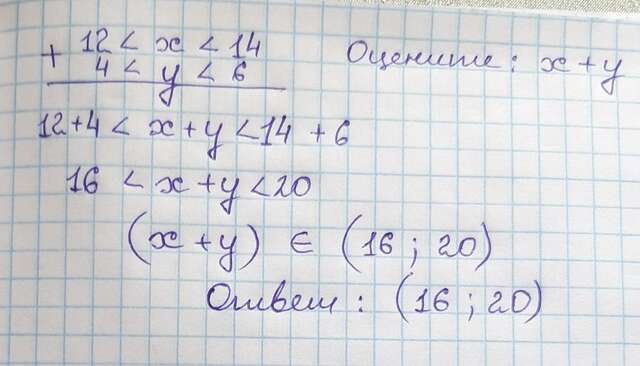 12 < x < 14 Оцените: x + y
+ 4 < y < 6
12+4 < x + y < 14 + 6
16 < x + y < 20
(x + y) ∈ (16 ; 20)
Ответ: (16 ; 20)